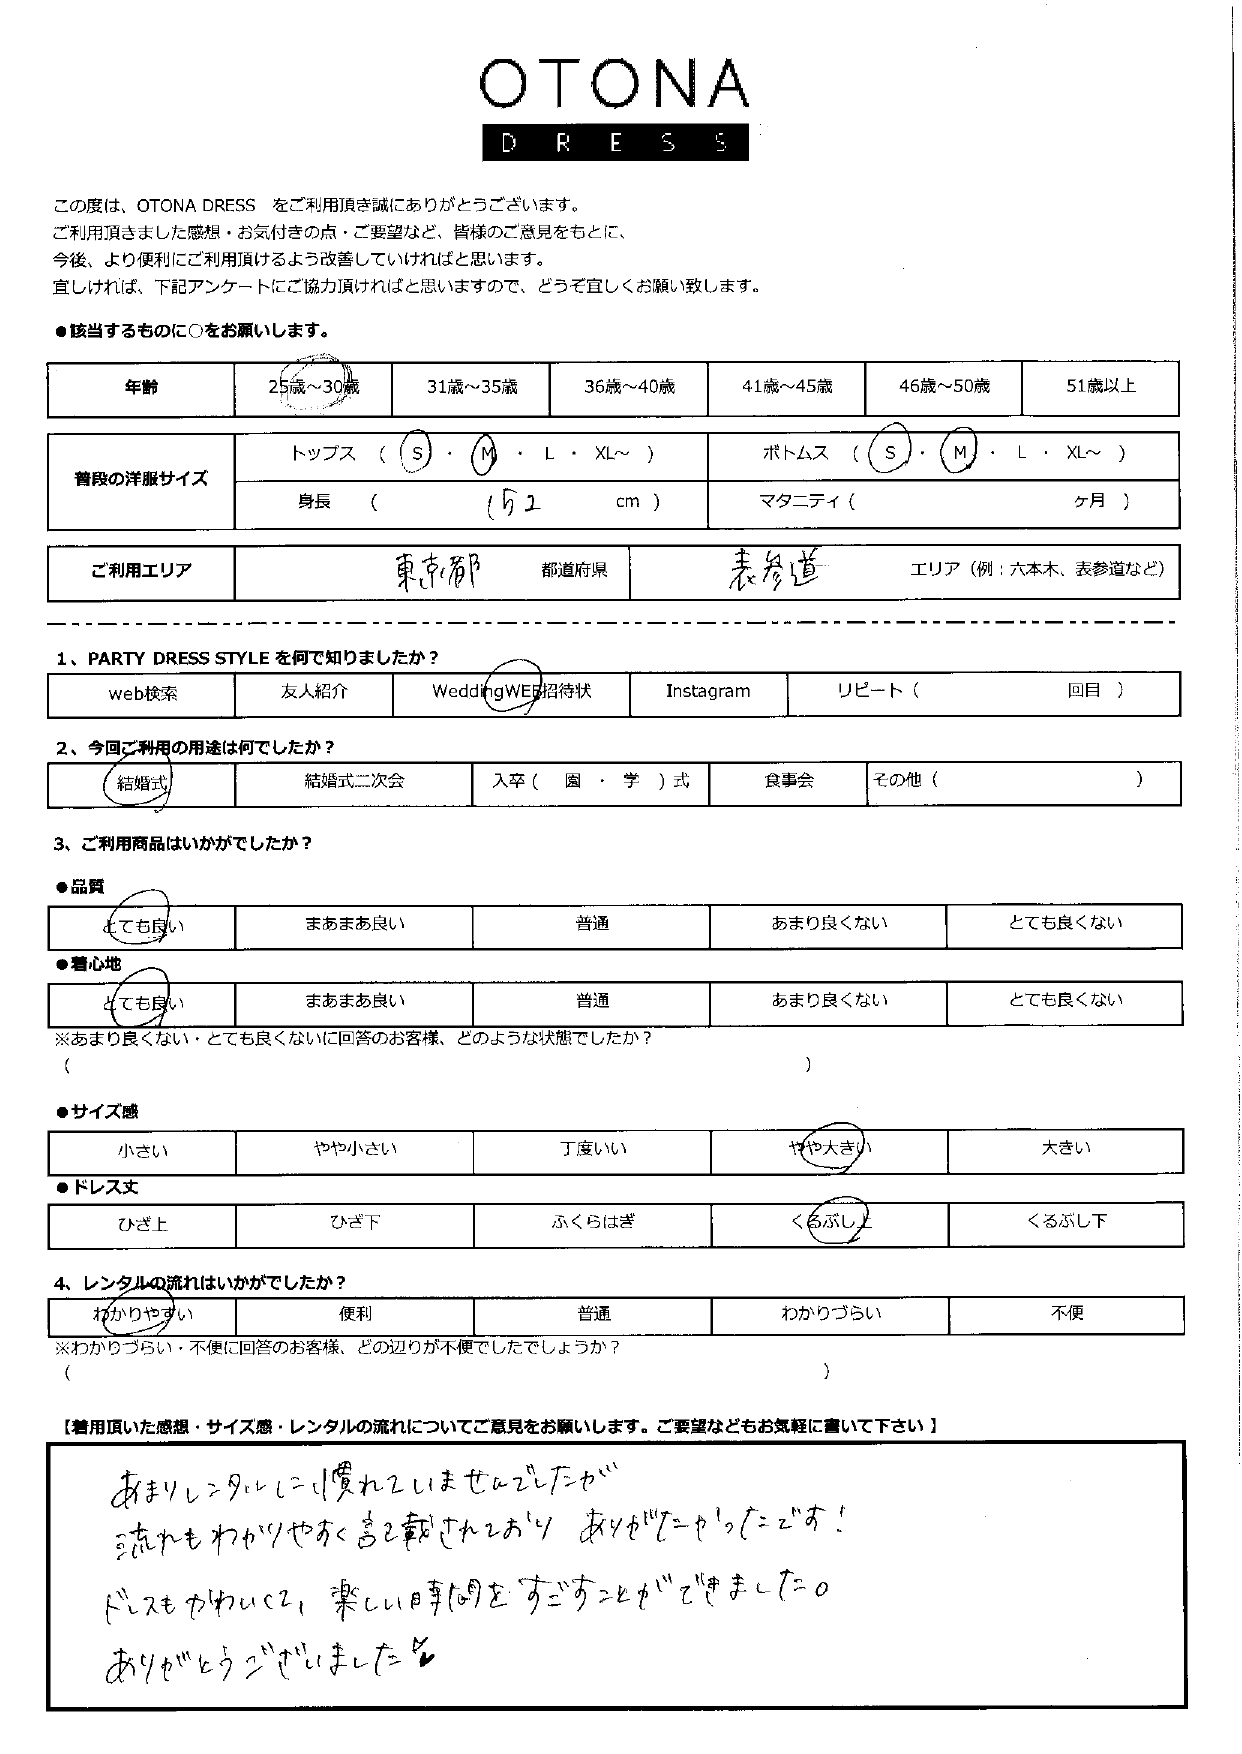 OTONA
DRESS
この度は、OTONA DRESS　をご利用頂き誠にありがとうございます。
ご利用頂きました感想・お気付きの点・ご要望など、皆様のご意見をもとに、
今後、より便利にご利用頂けるよう改善していければと思います。
宜しければ、下記アンケートにご協力頂ければと思いますので、どうぞ宜しくお願い致します。
●該当するものに○をお願いします。
年齢 25歳～30歳 31歳～35歳 36歳～40歳 41歳～45歳 46歳～50歳 51歳以上
普段の洋服サイズ
トップス （ S ・ M ・ L ・ XL～ ） ボトムス （ S ・ M ・ L ・ XL～ ）
身長 （ 152 cm ） マタニティ（ ヶ月 ）
ご利用エリア 東京都 都道府県 表参道 エリア（例：六本木、表参道など）
1、PARTY DRESS STYLE を何で知りましたか？
web検索 友人紹介 WeddingWEB招待状 Instagram リピート（ 回目 ）
2、今回ご利用の用途は何でしたか？
結婚式 結婚式二次会 入卒（ 園 ・ 学 ）式 食事会 その他（ ）
3、ご利用商品はいかがでしたか？
●品質
とても良い まあまあ良い 普通 あまり良くない とても良くない
●着心地
とても良い まあまあ良い 普通 あまり良くない とても良くない
※あまり良くない・とても良くないに回答のお客様、どのような状態でしたか？
（ ）
●サイズ感
小さい やや小さい 丁度いい やや大きい 大きい
●ドレス丈
ひざ上 ひざ下 ふくらはぎ くるぶし上 くるぶし下
4、レンタルの流れはいかがでしたか？
わかりやすい 便利 普通 わかりづらい 不便
※わかりづらい・不便に回答のお客様、どの辺りが不便でしたでしょうか？
（ ）
【着用頂いた感想・サイズ感・レンタルの流れについてご意見をお願いします。ご要望などもお気軽に書いて下さい 】
あまりレンタルに慣れていませんでしたが
流れもわかりやすく記載されており ありがたかったです！
ドレスもかわいくて、楽しい時間をすごすことができました。
ありがとうございました